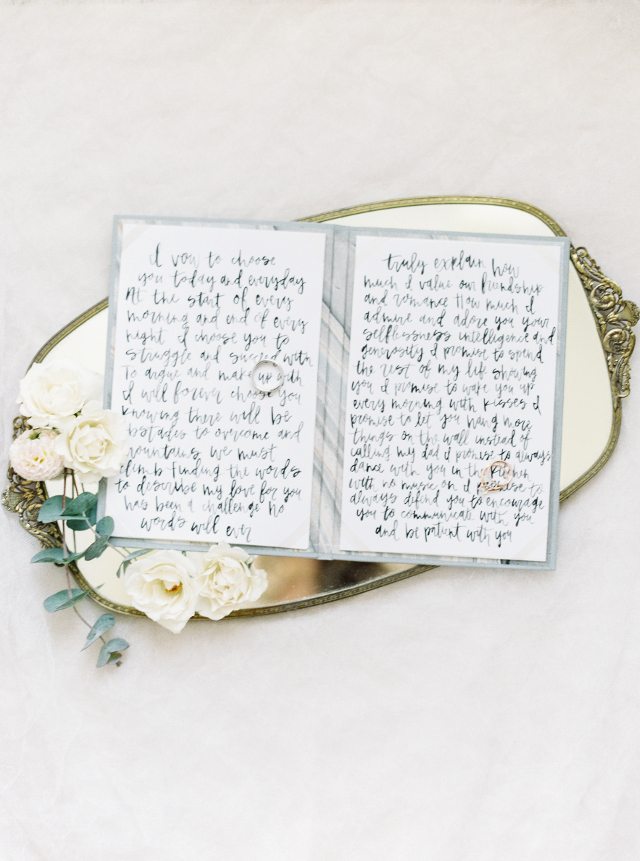 I vow to choose
you today and everyday
At the start of every
morning and end of every
night. I choose you to
struggle and succeed with
to argue and make up with
I will forever choose you
knowing there will be
obstacles to overcome and
mountains we must
climb finding the words
to describe my love for you
has been a challenge no
words will ever
truly explain how
much I value our friendship
and romance How much I
admire and adore you your
selflessness intelligence and
generosity I promise to spend
the rest of my life showing
you I promise to wake you up
every morning with kisses I
promise to let you hang more
things on the wall instead of
calling my dad I promise to always
dance with you in the kitchen
with no music on. I promise to
always defend you to encourage
you to communicate with you
and be patient with you